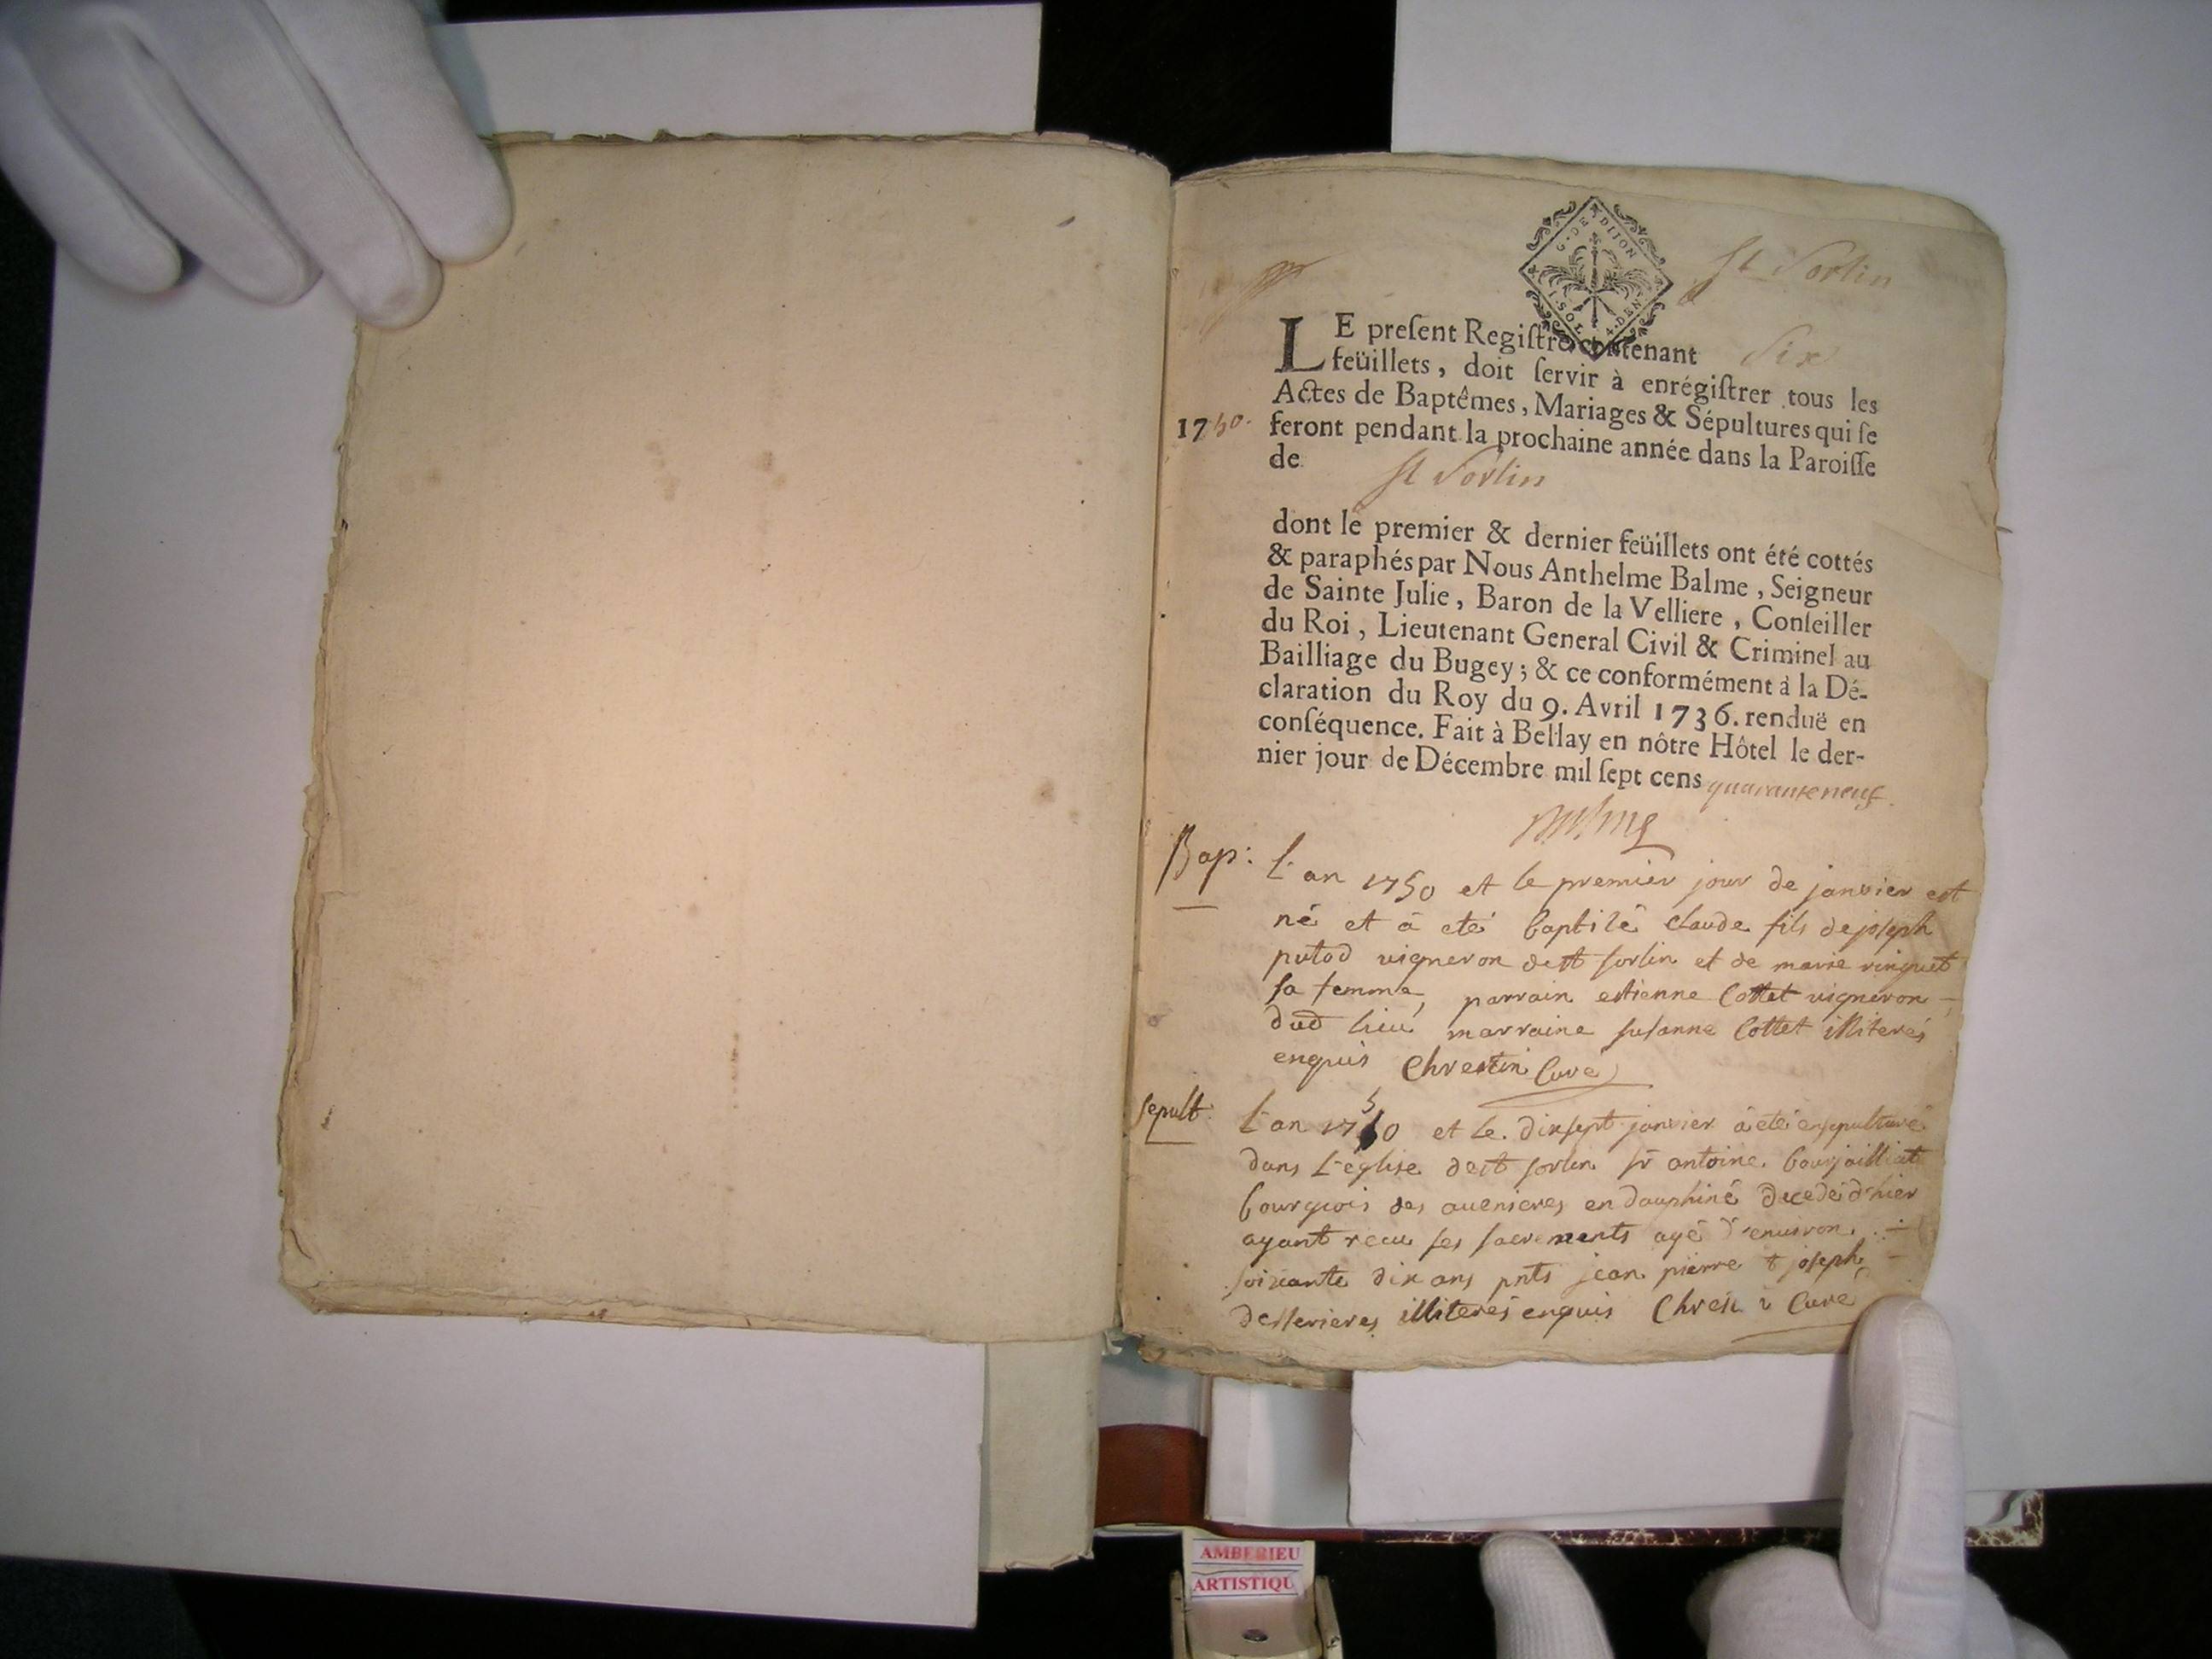 G. DE DIJON
1. SOL. 4. DEN
St Sorlin
LE preſent Regiſtre contenant six
feüillets, doit ſervir à enrégiſtrer tous les
Actes de Baptêmes, Mariages & Sépultures qui ſe
1750. feront pendant la prochaine année dans la Paroiſſe
de
St Sorlin
dont le premier & dernier feüillets ont été cottés
& paraphés par Nous Anthelme Balme, Seigneur
de Sainte Julie, Baron de la Velliere, Conſeiller
du Roi, Lieutenant General Civil & Criminel au
Bailliage du Bugey; & ce conformément à la Dé-
claration du Roy du 9. Avril 1736. renduë en
conſéquence. Fait à Bellay en nôtre Hôtel le der-
nier jour de Décembre mil ſept cens quaranteneuf.
Balme
Bap: L'an 1750 et le premier jour de janvier est
né et à eté baptisé claude fils de joseph
putod vigneron de st sorlin et de marie ringuet
sa femme, parrain estienne Cottet vigneron
dud lieu marraine susanne Cottet illiterés
enquis Chrestin Curé
sepult. L'an 1750 et le dixsept janvier à eté ensepulturé
dans L'église de st sorlin sr antoine bourjailliat
bourgeois des auenieres en dauphiné decedé d'hier
ayant recu ses sacrements agé d'environ
soixante dix ans pnts jean pierre & joseph
desserieres illiterés enquis Chrestin Curé
AMBERIEU
ARTISTIQU